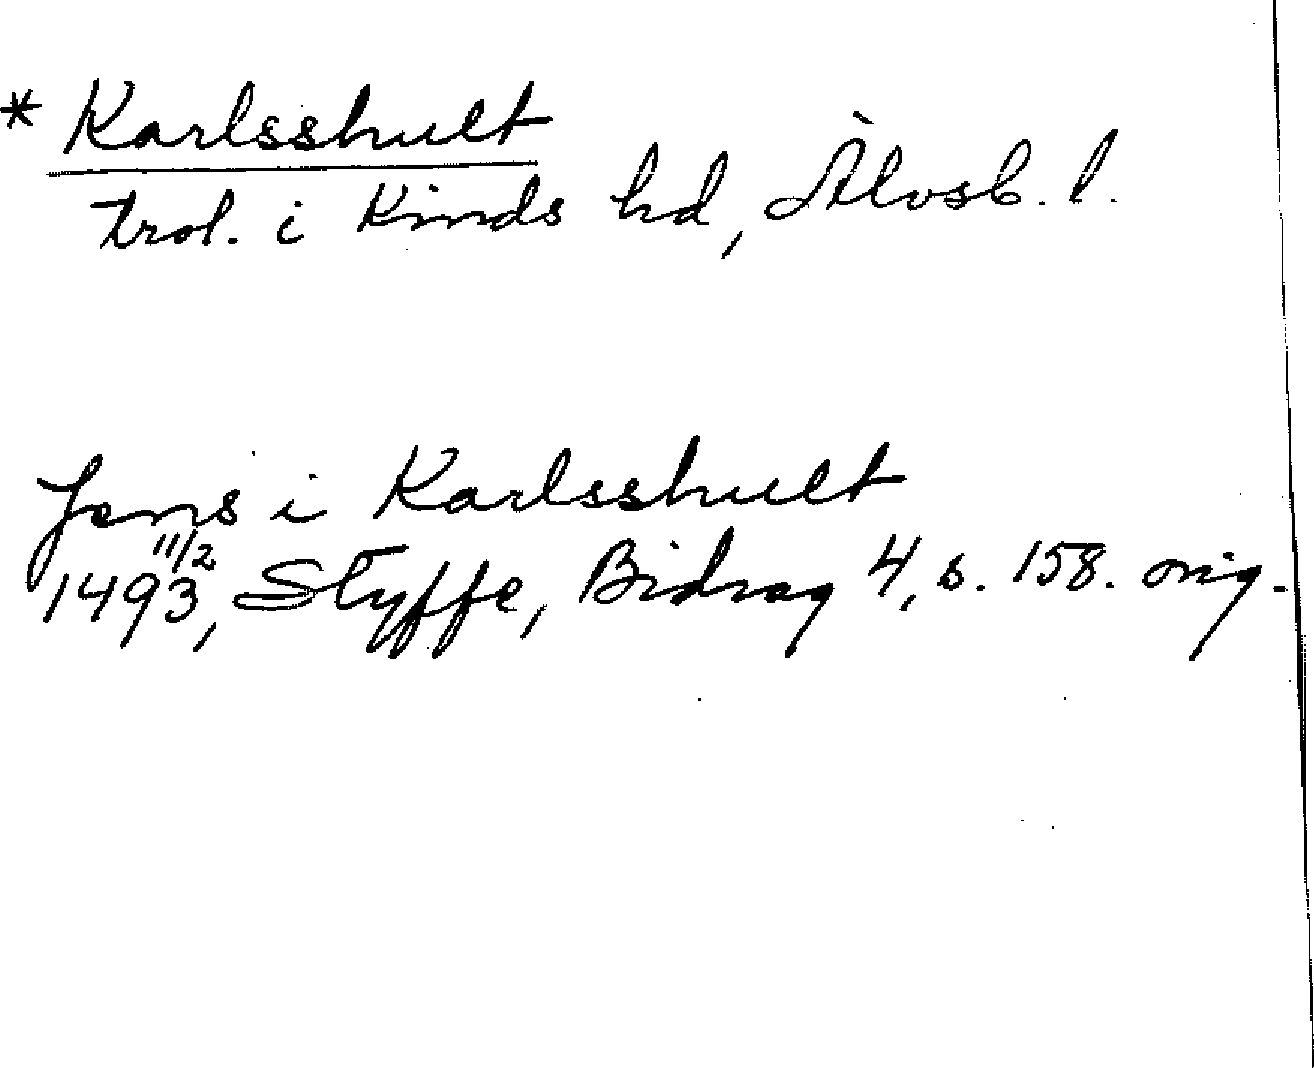 * Karlsshult
trol. i Kinds hd, Älvsb. l.
Jens i Karlsshult
11/2
1493, Styffe, Bidrag 4, s. 158. orig.